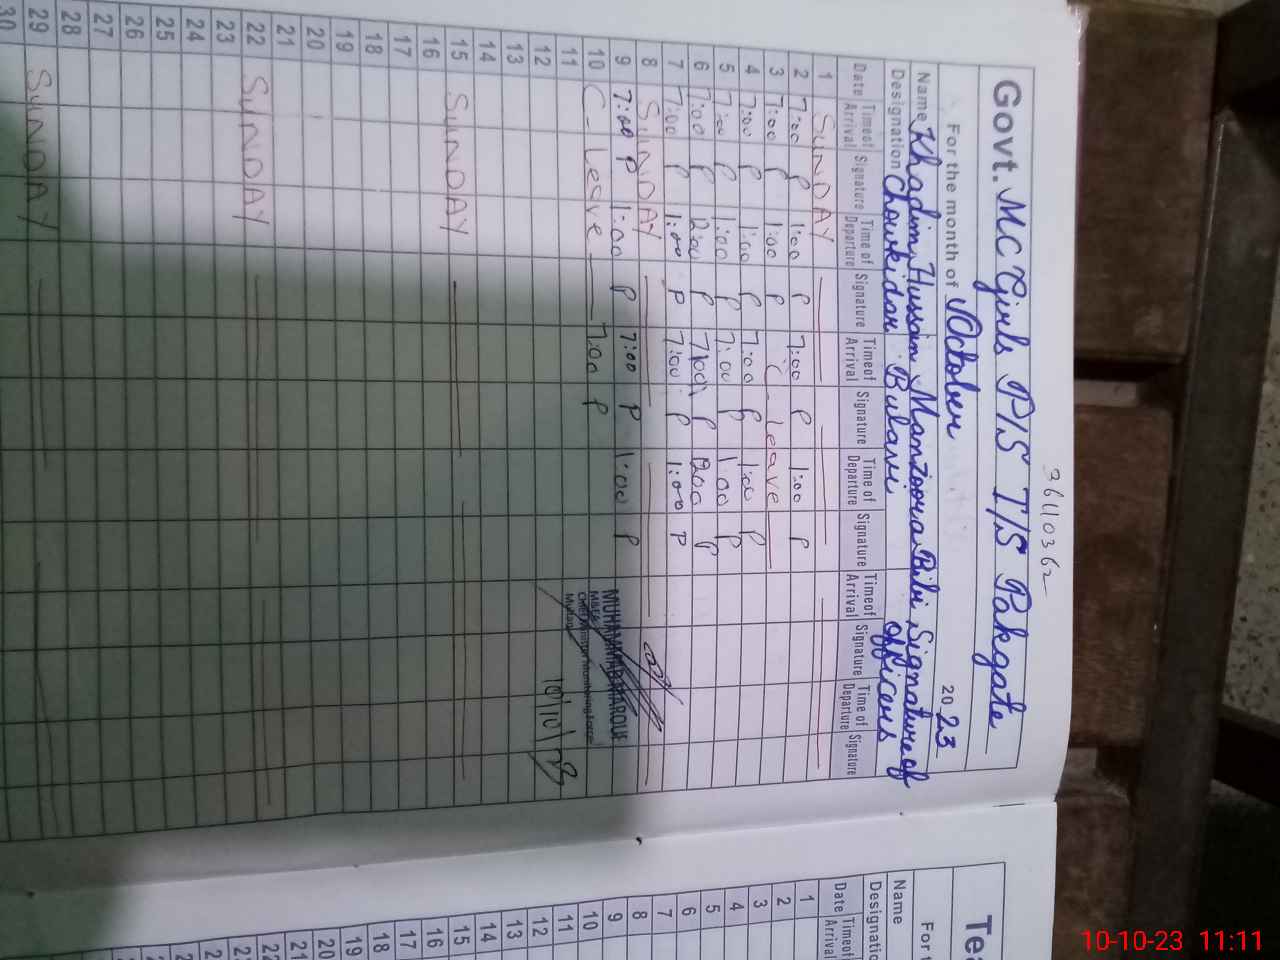 36110362
Govt. MC Girls P/S T/S Pakgate
For the month of October 2023
Name Khadim Hussain, Manzoora Bibi, Signature of
Designation Chowkidar Bulavi officers
Date Time of Arrival Signature Time of Departure Signature Time of Arrival Signature Time of Departure Signature Time of Arrival Signature Time of Departure Signature
1 SUNDAY
2 7:00 P 1:00 P 7:00 P 1:00 P
3 7:00 P 1:00 P C - Leave
4 7:00 P 1:00 P 7:00 P 1:00 P
5 7:00 P 1:00 P 7:00 P 1:00 P
6 7:00 P 12:00 P 7:00 P 12:00 P
7 7:00 P 1:00 P 7:00 P 1:00 P
8 SUNDAY
9 7:00 P 1:00 P 7:00 P 1:00 P
10 C - Leave 7:00 P
MUHAMMAD
10/10/23
11
12
13
14
15 SUNDAY
16
17
18
19
20
21
22 SUNDAY
23
24
25
26
27
28
29 SUNDAY
30
Name
Date Time of Arrival
1
2
3
4
5
6
7
8
9
10
11
12
13
14
15
16
17
18
19
20
21
10-10-23 11:11